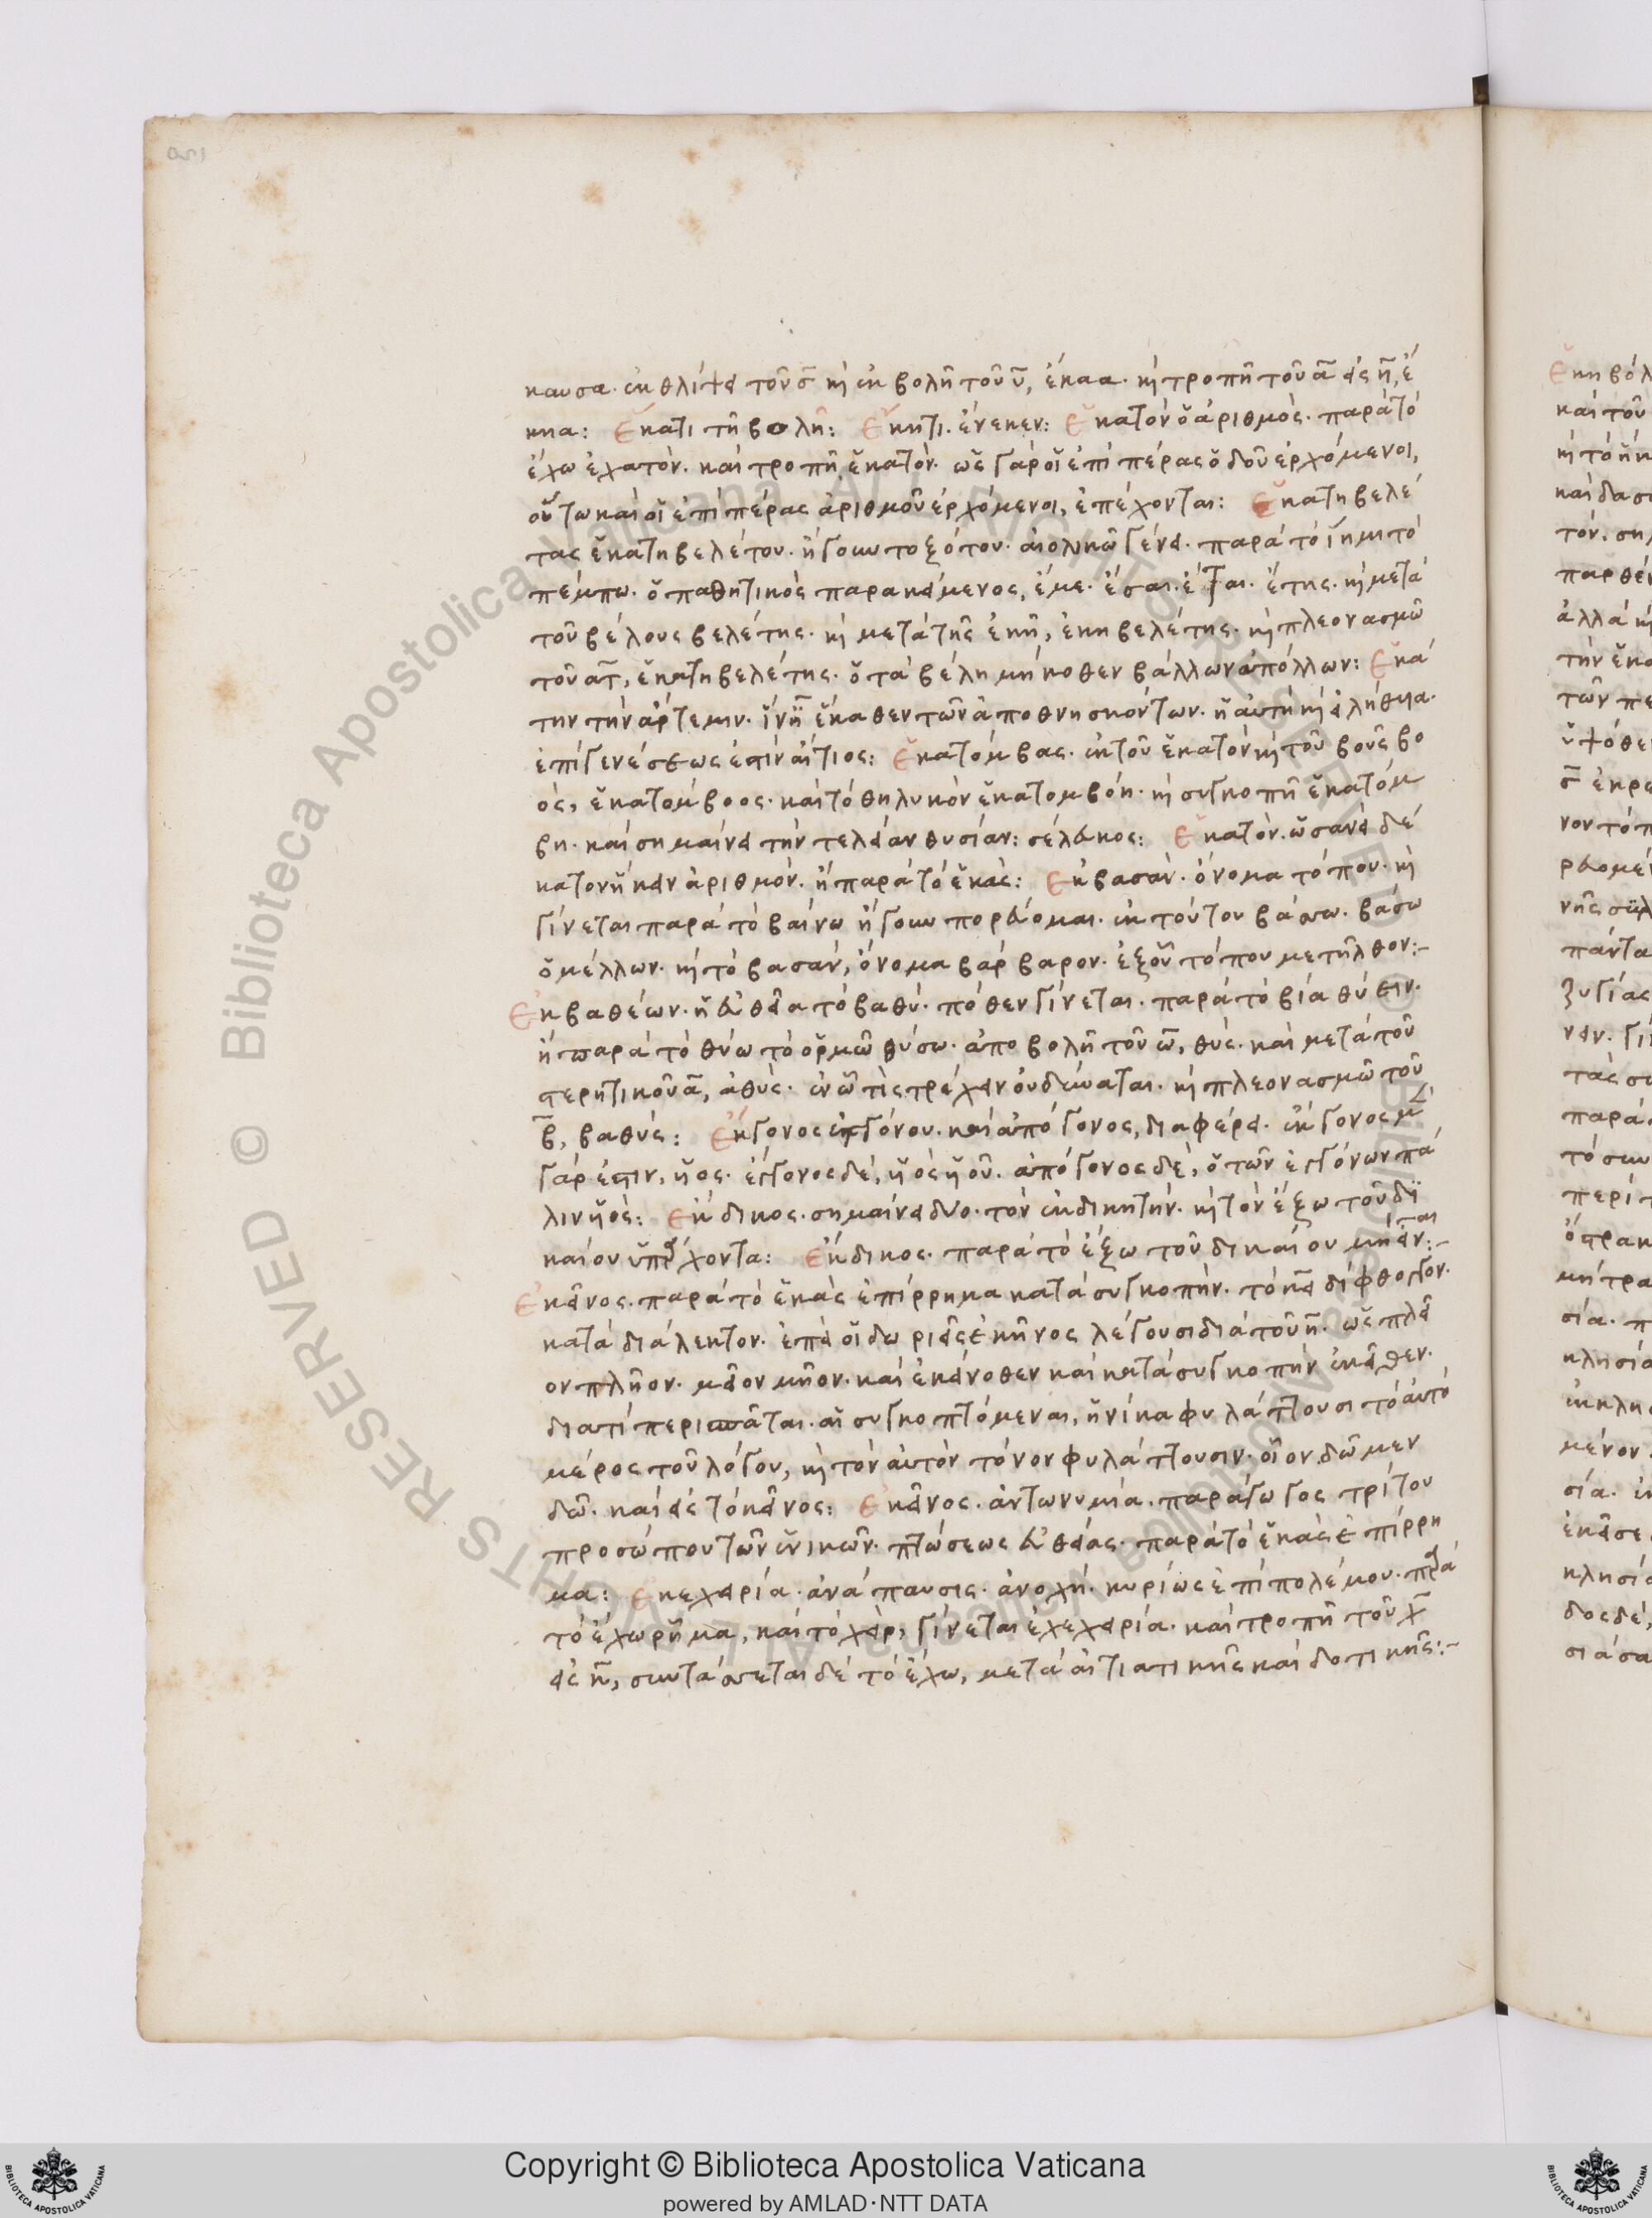 καυσα· ἐκθλίψει τοῦ σ̅ κὶ ἐκβολῆ τοῦ υ̅, ἔκαα· κὶ τροπῆ τοῦ α̅ εἰς η̅, ἔ
κηα: Ἕκατι τῆ βολῆ: Ἕκητι. ἕνεκεν: Ἑκατὸν ὁ ἀριθμὸς· παρὰ τὸ
ἔχω ἐχατόν· καὶ τροπῆ ἑκατὸν· ὡς γὰρ οἱ ἐπὶ πέρας ὁδοῦ ἐρχόμενοι,
οὕτω καὶ οἱ ἐπὶ πέρας ἀριθμοῦ ἐρχόμενοι, ἐπέχονται: Ἑκατηβελέ
τας ἑκατηβελέτου· ἤγουν τοξότου· αἰολικῶ γένει· παρὰ τὸ ἵημι τὸ
πέμπω· ὁ παθητικὸς παρακείμενος, ἕμαι· ἕσαι· ἕται· ἕτης· κὶ μετὰ
τοῦ βέλους βελέτης· κὶ μετὰ τῆς ἑκῆ, ἑκηβελέτης· κὶ πλεονασμῶ
τοῦ ατ̅, ἑκατηβελέτης· ὁ τὰ βέλη μήκοθεν βάλλων ἀπόλλων: Ἑκά
την τὴν ἄρτεμιν· ἵν' ἦ ἕκαθεν τῶν ἀποθνησκόντων· ἡ αὐτὴ κὶ εἰλήθυια·
ἐπὶ γενέσεως ἐστὶν αἴτιος: Ἑκατόμβας· ἐκ τοῦ ἑκατὸν κὶ τοῦ βοῦς βο
ὸς, ἑκατομβοος· καὶ τὸ θηλυκὸν ἑκατομβόη· κὶ συγκοπῆ ἑκατόμ
βη· καὶ σημαίνει τὴν τελείαν θυσίαν: σέλευκος: Ἑκατὸν. ὡσανεὶ δέ
κατον ἥκειν ἀριθμὸν. ἢ παρὰ τὸ ἑκὰς: Ἐκ βασὰν· ὄνομα τόπου· κὶ
γίνεται παρὰ τὸ βαίνω ἤγουν πορεύομαι· ἐκ τούτου βάσω· βάσω
ὁ μέλλων· κὶ τὸ βασάν, ὄνομα βάρβαρον· ἐξ οὗ τόπου μετῆλθον:–
Ἐκ βαθέων· ἡ εὐθεῖα τὸ βαθύ· πόθεν γίνεται· παρὰ τὸ βία θύειν·
ἢ παρὰ τὸ θύω τὸ ὁρμῶ θύσω· ἀποβολῆ τοῦ ω̅, θυς· καὶ μετὰ τοῦ
στερητικοῦ α̅, ἀθὺς· ἐν ὧ τὶς τρέχειν οὐ δύναται· κὶ πλεονασμῶ τοῦ
β̅, βαθύς: Ἔκγονος ἐκγόνου· καὶ ἀπόγονος, διαφέρει· ἔκγονος μ
γάρ ἐστιν, υἱός· ἔγγονος δὲ, υἱὸς υἱοῦ· ἀπόγονος δὲ, ὁ τῶν ἐγγόνων πά
λιν υἱὸς: Ἔκδικος· σημαίνει δύο· τὸν ἐκδικητήν· κὶ τὸν ἔξω τοῦ δι
καίου ὑπάρχοντα: Ἔκδικος· παρὰ τὸ ἔξω τοῦ δικαίου
Ἐκεῖνος· παρὰ τὸ ἑκὰς ἐπίρρημα κατὰ συγκοπήν· τὸ κει δίφθογγον·
κατὰ διάλεκτον· ἐπεὶ οἱ δωριεῖς ἐκῆνος λέγουσι διὰ τοῦ η̅· ὡς πλεῖ
ον πλῆον· μεῖον μῆον· καὶ ἐκείνοθεν καὶ κατὰ συγκοπὴν ἐκεῖθεν·
διατί περισπᾶται· αἱ συγκοπτόμεναι, ἡνίκα φυλάττουσι τὸ αὐτὸ
μέρος τοῦ λόγου, κὶ τὸν αὐτὸν τόνον φυλάττουσιν· οἷον δῶμεν
δῶ· καὶ εἰς τὸ κεῖνος: Ἐκεῖνος· ἀντωνυμία· παράγωγος τρίτου
προσώπου τῶν ἑνικῶν· πτώσεως εὐθείας· παρὰ τὸ ἑκὰς ἐπίρρη
μα: Ἐκεχειρία· ἀνάπαυσις· ἀνοχή· κυρίως ἐπὶ πολέμου· παρὰ
τὸ ἔχω ρῆμα, καὶ τὸ χεὶρ, γίνεται ἐχεχειρία· καὶ τροπῆ τοῦ χ̅
εἰς κ̅, συντάσσεται δὲ τὸ ἔχω, μετὰ αἰτιατικῆς καὶ δοτικῆς:–
Copyright © Biblioteca Apostolica Vaticana
powered by AMLAD·NTT DATA